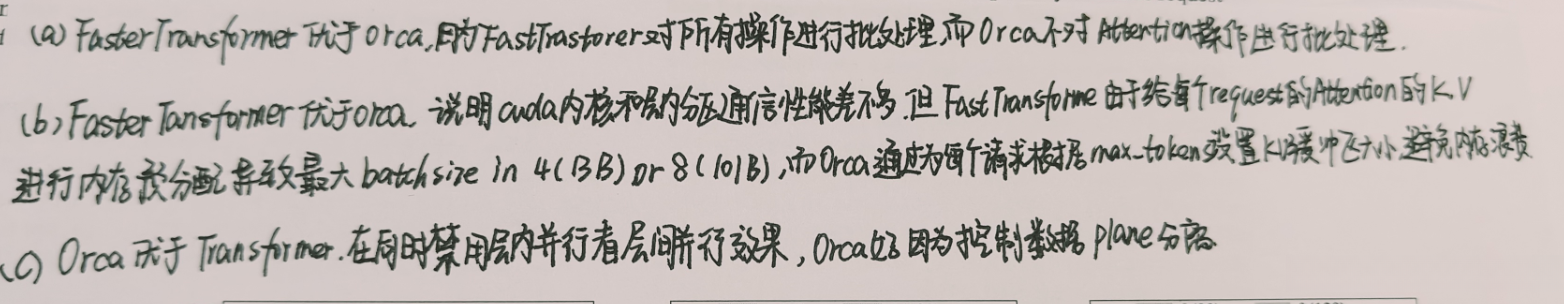 (a) FasterTransformer 优于 orca,因为FastTrastorer对所有操作进行批处理,而Orca不对Attention操作进行批处理.
(b) Faster Tansformer 优于orca. 说明cuda内核和层内分区通信性能差不多.但FastTransforme由于给每个request的Attention的K.V
进行内存预分配导致最大 batch size in 4(13B) or 8(101B),而Orca通过为每个请求根据max-token设置KV缓冲区大小避免内存浪费
(C) Orca 优于 Transformer.在同时禁用层内并行看层间并行效果,Orca好因为控制数据plane分离